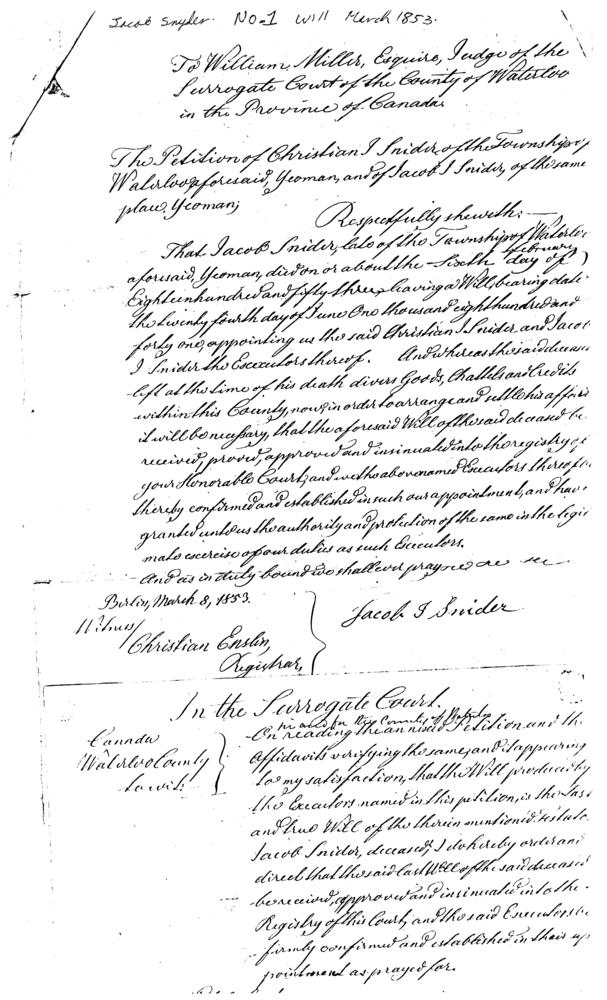 Jacob Snyder. No-1 Will March 1853.
To William Miller, Esquire, Judge of the
Surrogate Court of the County of Waterloo
in the Province of Canada.
The Petition of Christian I Snider, of the Township of
Waterloo aforesaid, Yeoman, and of Jacob I Snider, of the same
place, Yeoman;
Respectfully sheweth:—
That Jacob Snider, late of the Township of Waterloo
aforesaid, Yeoman, died on or about the Sixth day of February
Eighteen hundred and fifty three, leaving a Will, bearing date
the twenty fourth day of June One thousand eight hundred and
forty one, appointing us the said Christian I Snider, and Jacob
I Snider the Executors thereof. And whereas the said deceas
left at the time of his death divers Goods, Chattels and Credits
within this County, now, in order to arrange and settle his affairs
it will be necessary, that the aforesaid Will of the said deceased be
received, proved, approved and insinuated into the registry of
your Honorable Court, and we the above named Executors thereof be
thereby confirmed and established in such our appointment, and have
granted unto us the authority and protection of the same in the legi
mate exercise of our duties as such Executors.
And as in duty bound we shall ever pray
Berlin, March 8, 1853.
Witness
Christian Enslin,
Registrar,
Jacob I Snider
In the Surrogate Court.
in and for the County of Waterloo
Canada
Waterloo County
to wit:
On reading the annexed Petition and the
Affidavits verifying the same, and it appearing
to my satisfaction, that the Will produced by
the Executors named in this petition, is the last
and true Will of the therein mentioned testator
Jacob Snider, deceased, I do hereby order and
direct that the said last Will of the said deceased
be received, approved and insinuated into the
Registry of this Court, and the said Executors be
firmly confirmed and established in their ap
pointment as prayed for.